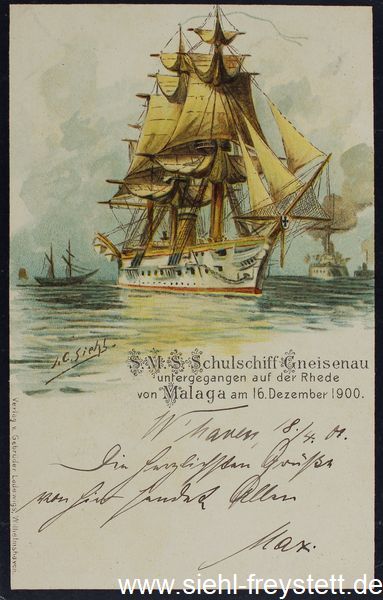 J. C. Siehl.
S.M.S. Schulschiff Gneisenau
untergegangen auf der Rhede
von Malaga am 16. Dezember 1900.
W'haven, 18./4. 01.
Die herzlichsten Grüße
von hier sendet Allen
Max.
Verlag v. Gebrüder Ladewigs, Wilhelmshaven.
www.siehl-freystett.de